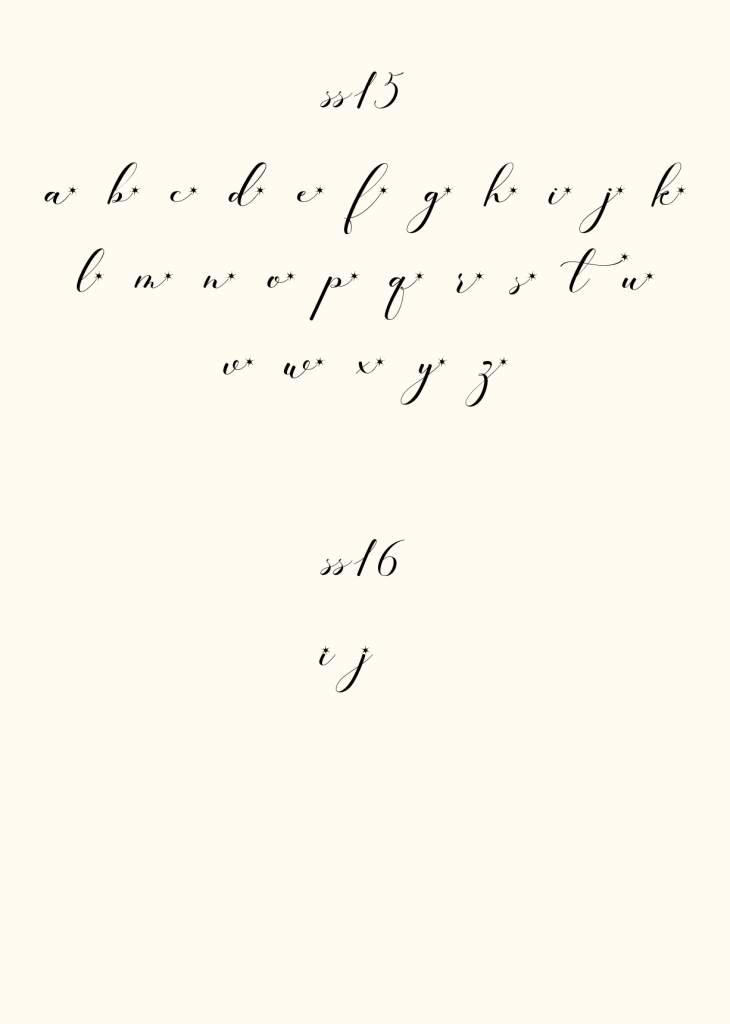 ss15
a b c d e f g h i j k
l m n o p q r s t u
v w x y z
ss16
i j